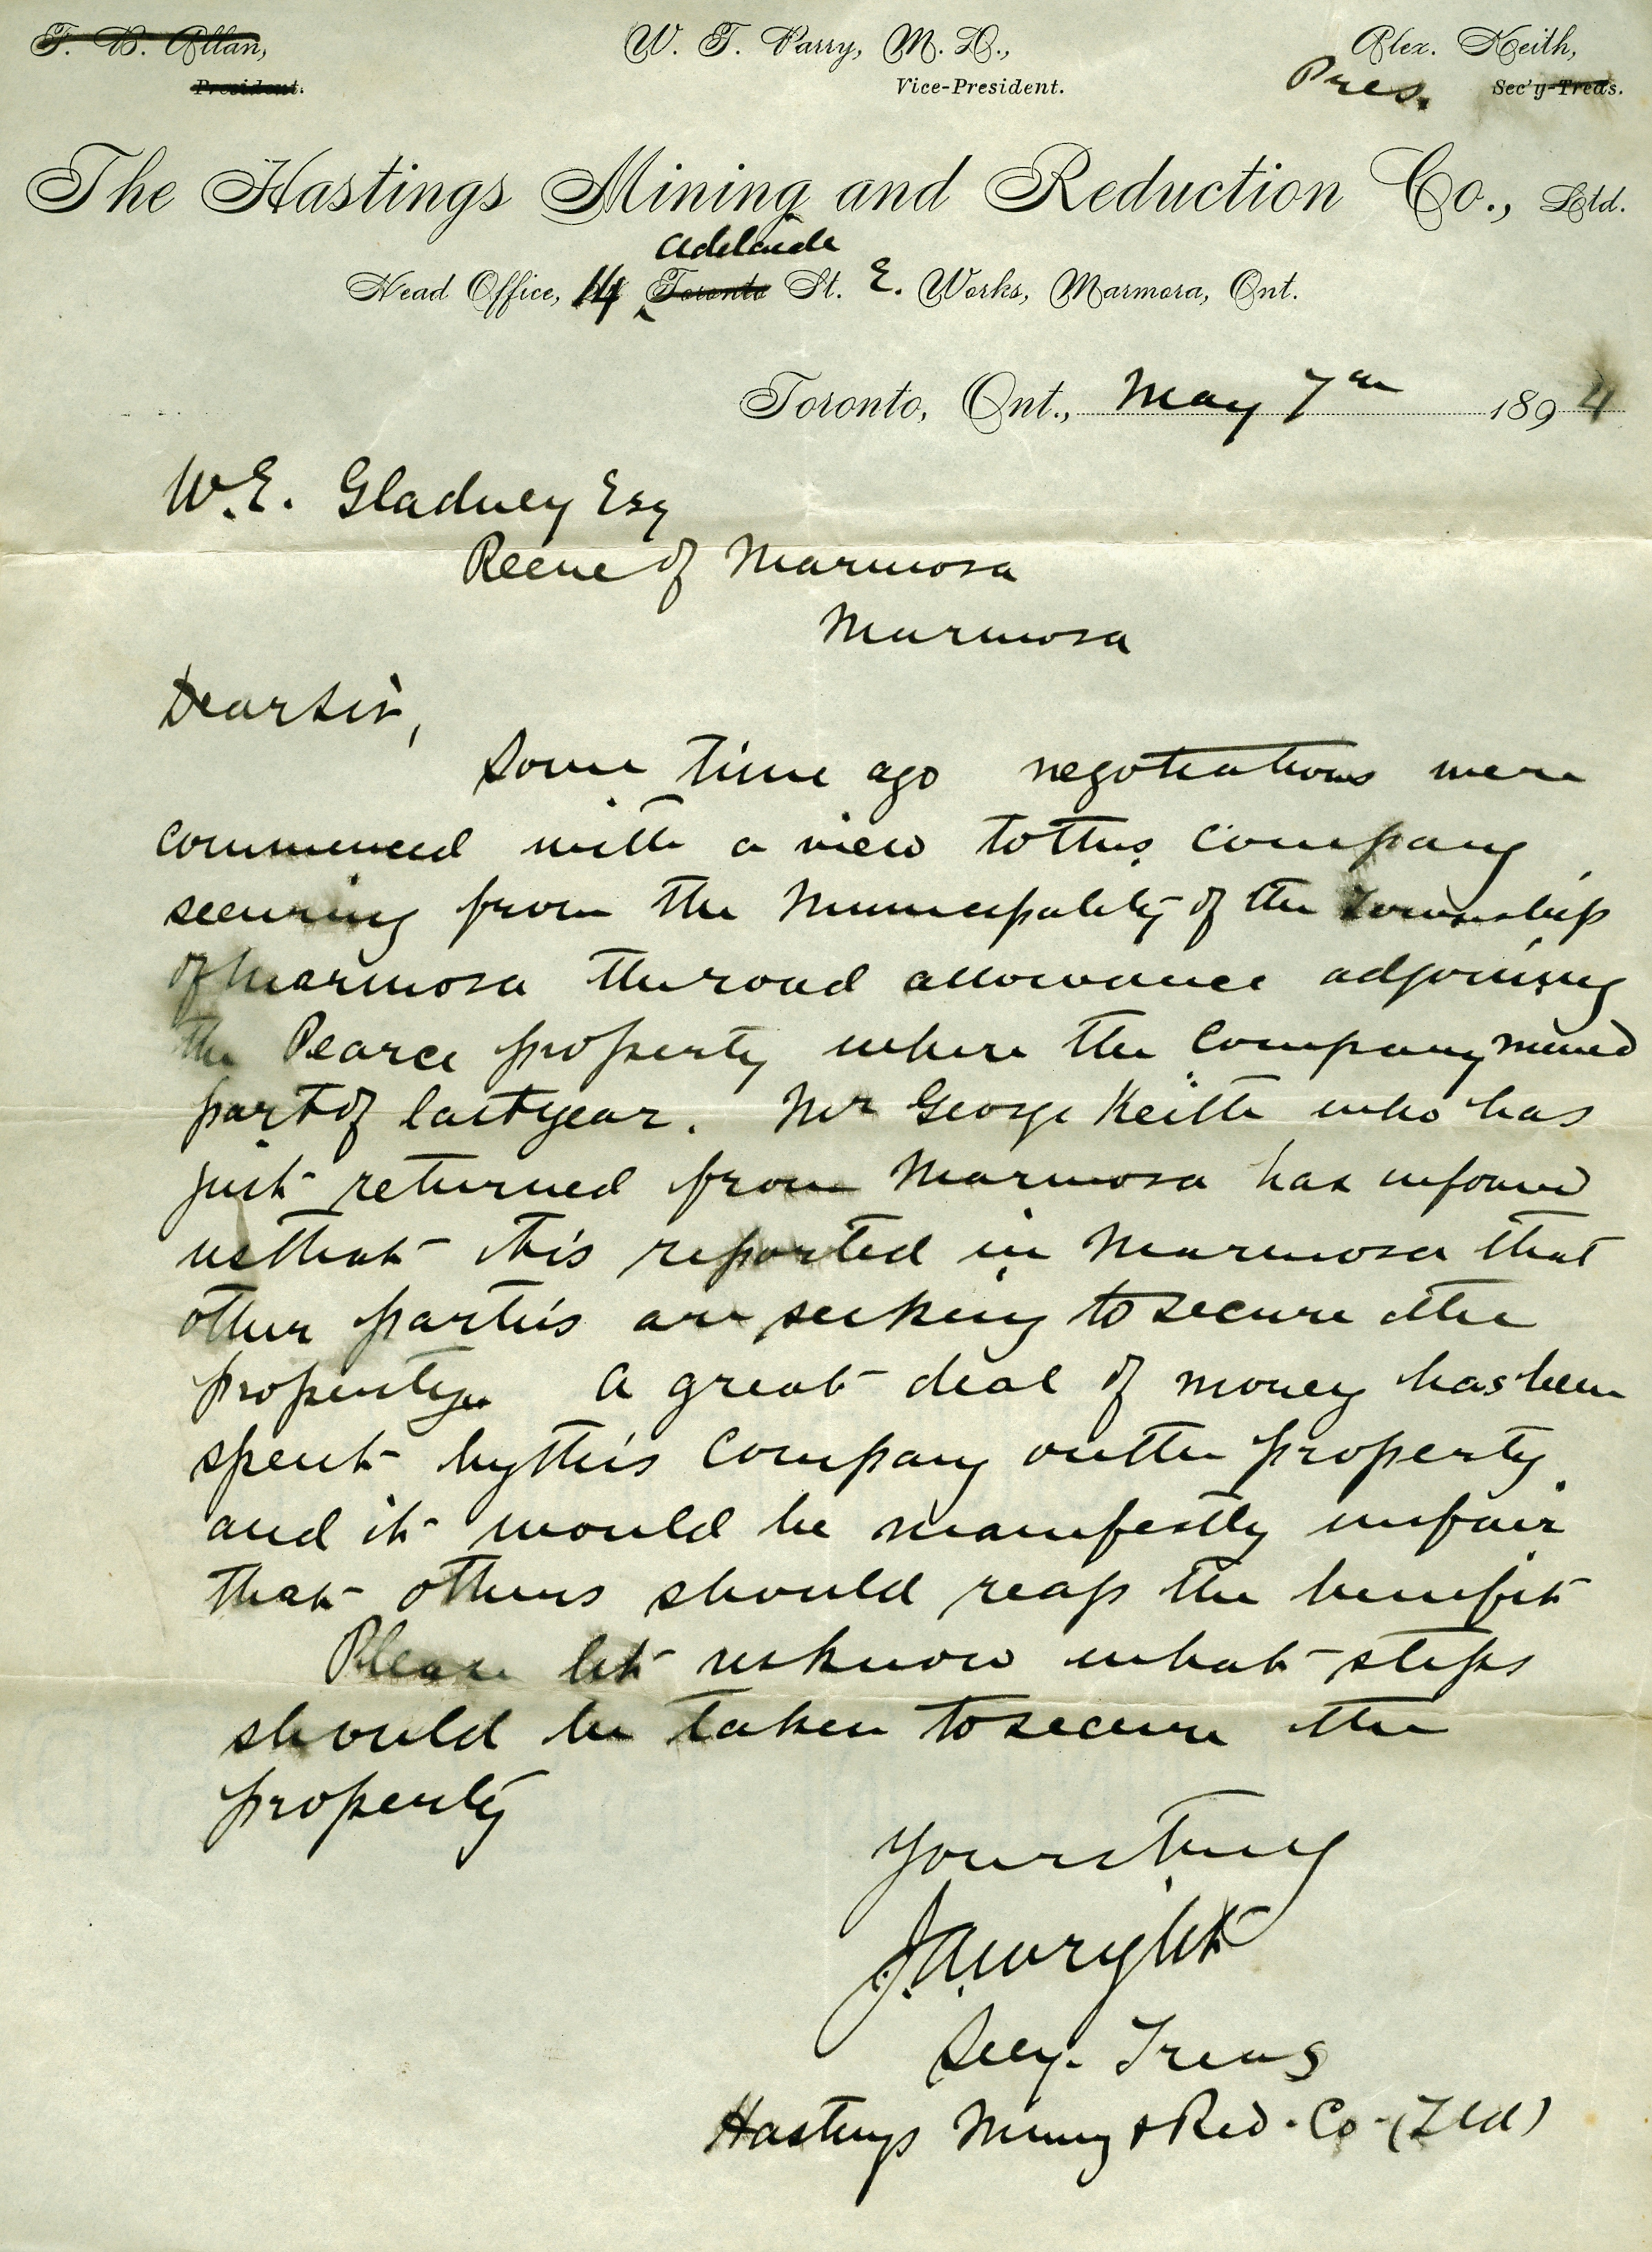 T. B. Allan, W. T. Parry, M. D., Alex. Keith,
President. Vice-President. Pres. Sec'y-Treas.
The Hastings Mining and Reduction Co., Ltd.
Adelaide
Head Office, 14 Toronto St. E. Works, Marmora, Ont.
Toronto, Ont., May 7th 1894
W. E. Gladney Esq
Reeve of Marmora
Marmora
Dear Sir,
Some time ago negotiations were
commenced with a view to this Company
securing from the Municipality of the Township
of Marmora the road allowance adjoining
the Pearce property where the Company mined
part of last year. Mr George Keith who has
just returned from Marmora has informed
us that it is reported in Marmora that
other parties are seeking to secure the
property. A great deal of money has been
spent by this Company on the property
and it would be manifestly unfair
that others should reap the benefit
Please let us know what steps
should be taken to secure the
property
Yours truly
J. A. Wright
Secy. Treas
Hastings Mining & Red. Co. (Ltd)